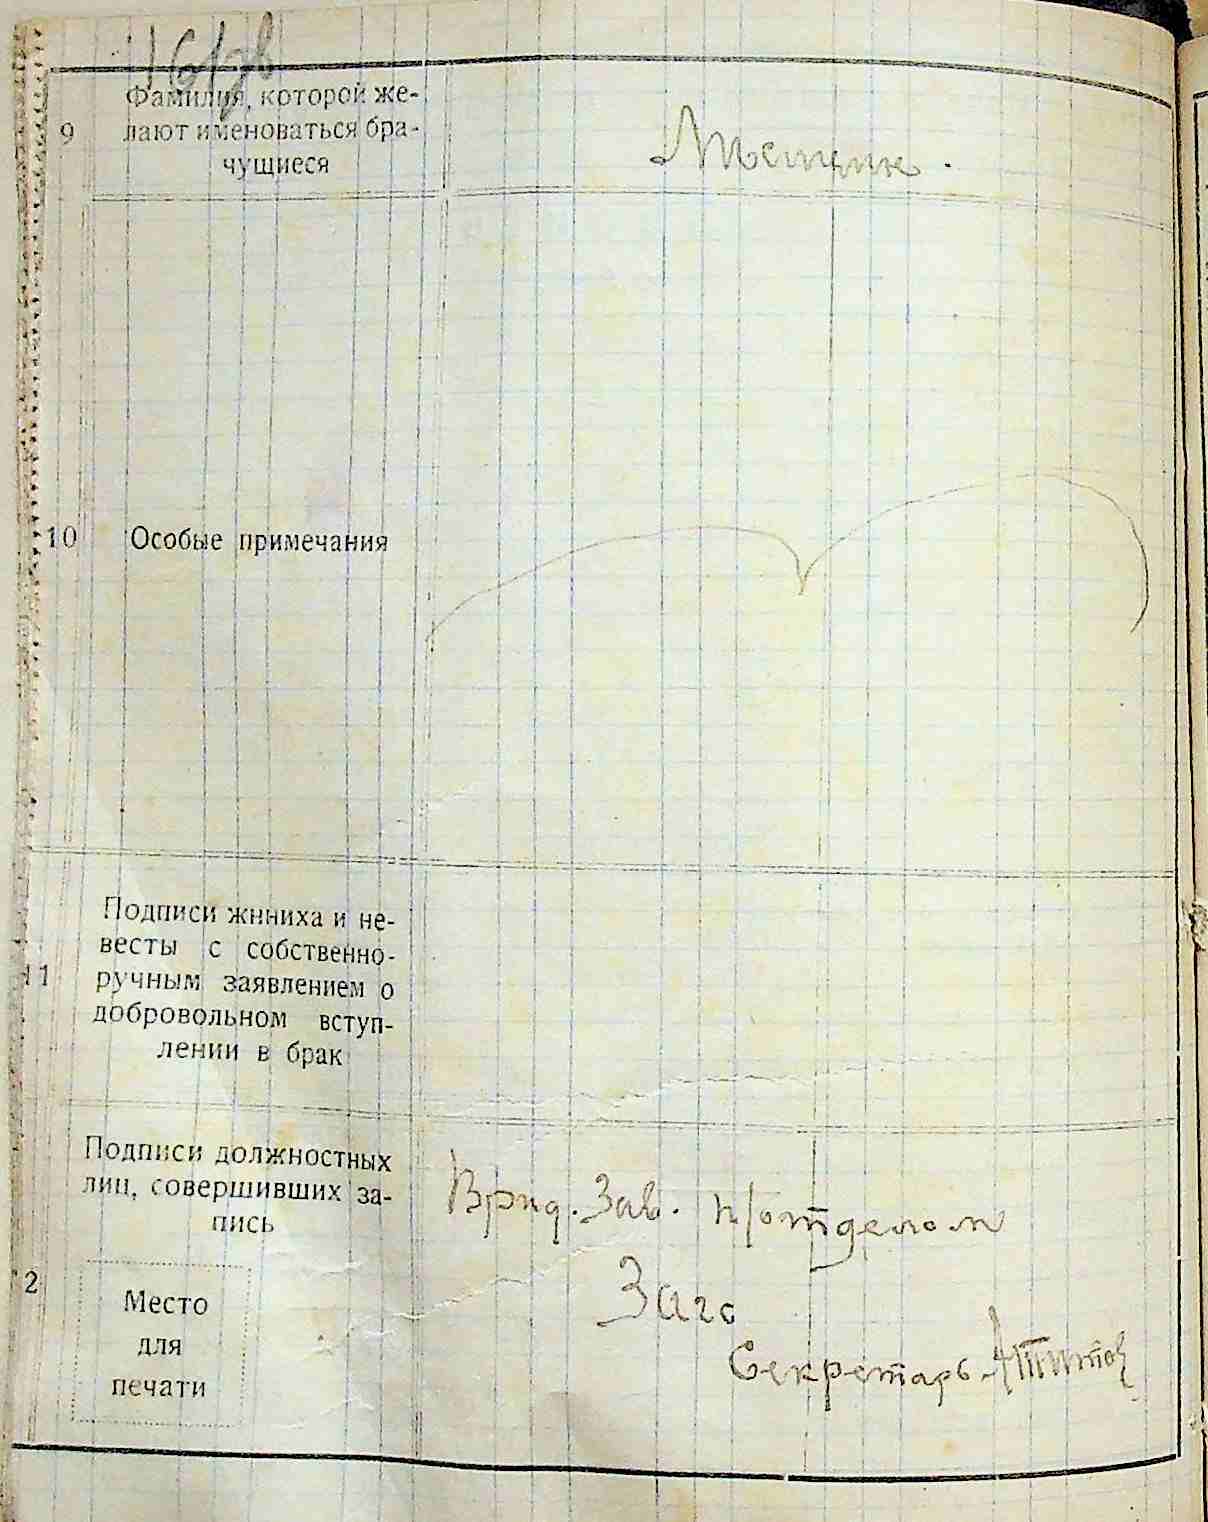 9
Фамилия, которой же-
лают именоваться бра-
чущиеся
10
Особые примечания
11
Подписи жнниха и не-
весты с собственно-
ручным заявлением о
добровольном вступ-
лении в брак
Подписи должностных
лиц, совершивших за-
пись
Врид. Зав. п/отделом
Загс
2
Место
для
печати
Секретарь